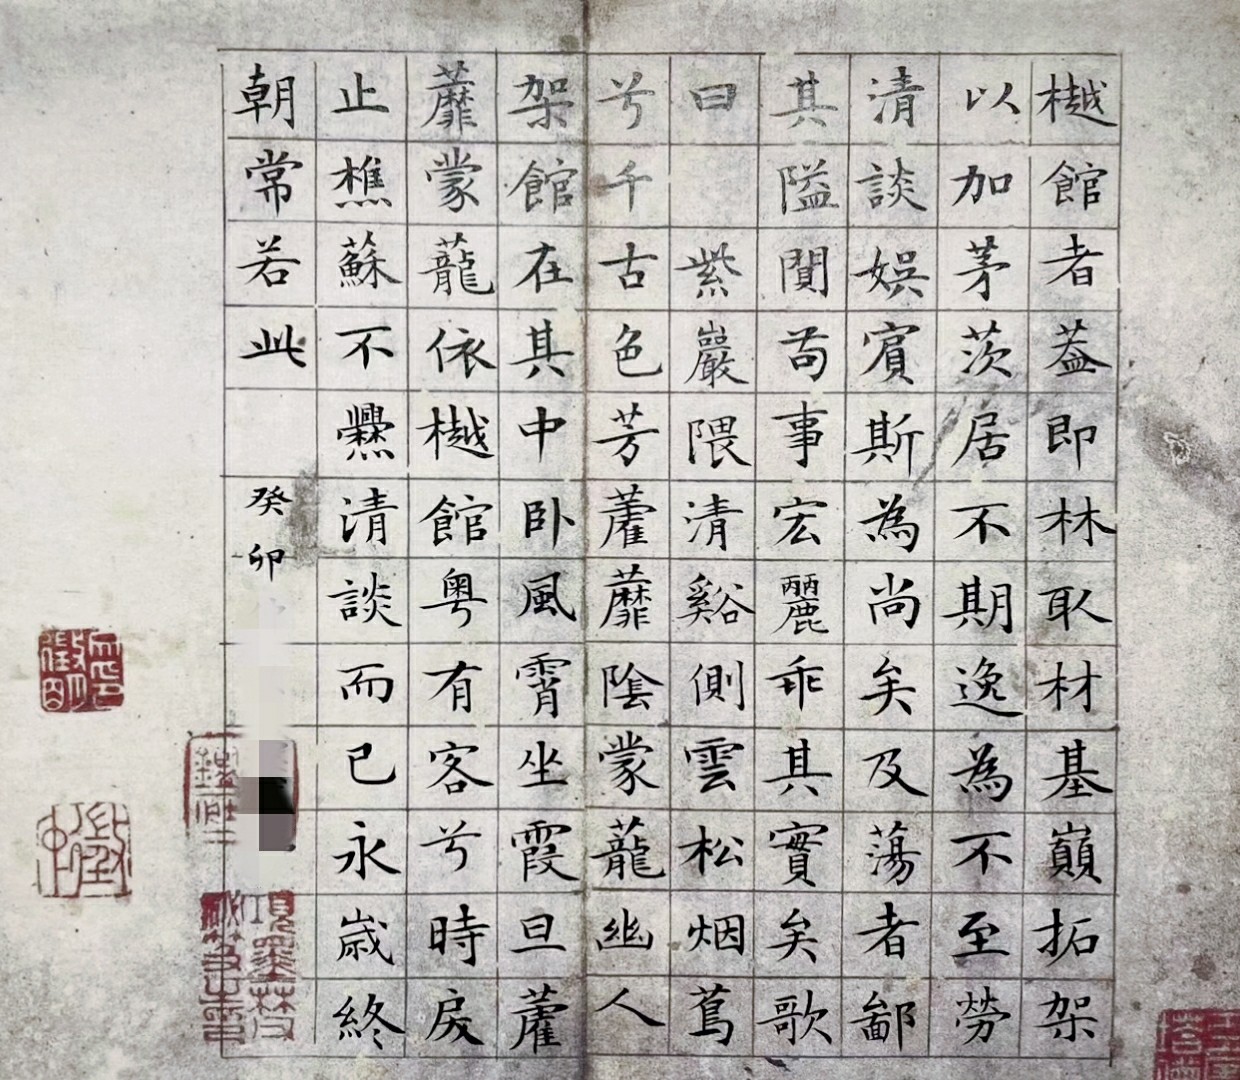 樾館者葢即林取材基巔拓架
以加茅茨居不期逸為不至勞
清談娛賓斯為尚矣及蕩者鄙
其隘閴苟事宏麗乖其實矣歌
曰紫巖隈清谿側雲松烟蔦
兮千古色芳藿蘼陰蒙蘢幽人
架館在其中卧風霄坐霞旦藿
蘼蒙蘢依樾館粤有客兮時戾
止樵蘇不爨清談而已永歲終
朝常若此
癸卯
項墨林